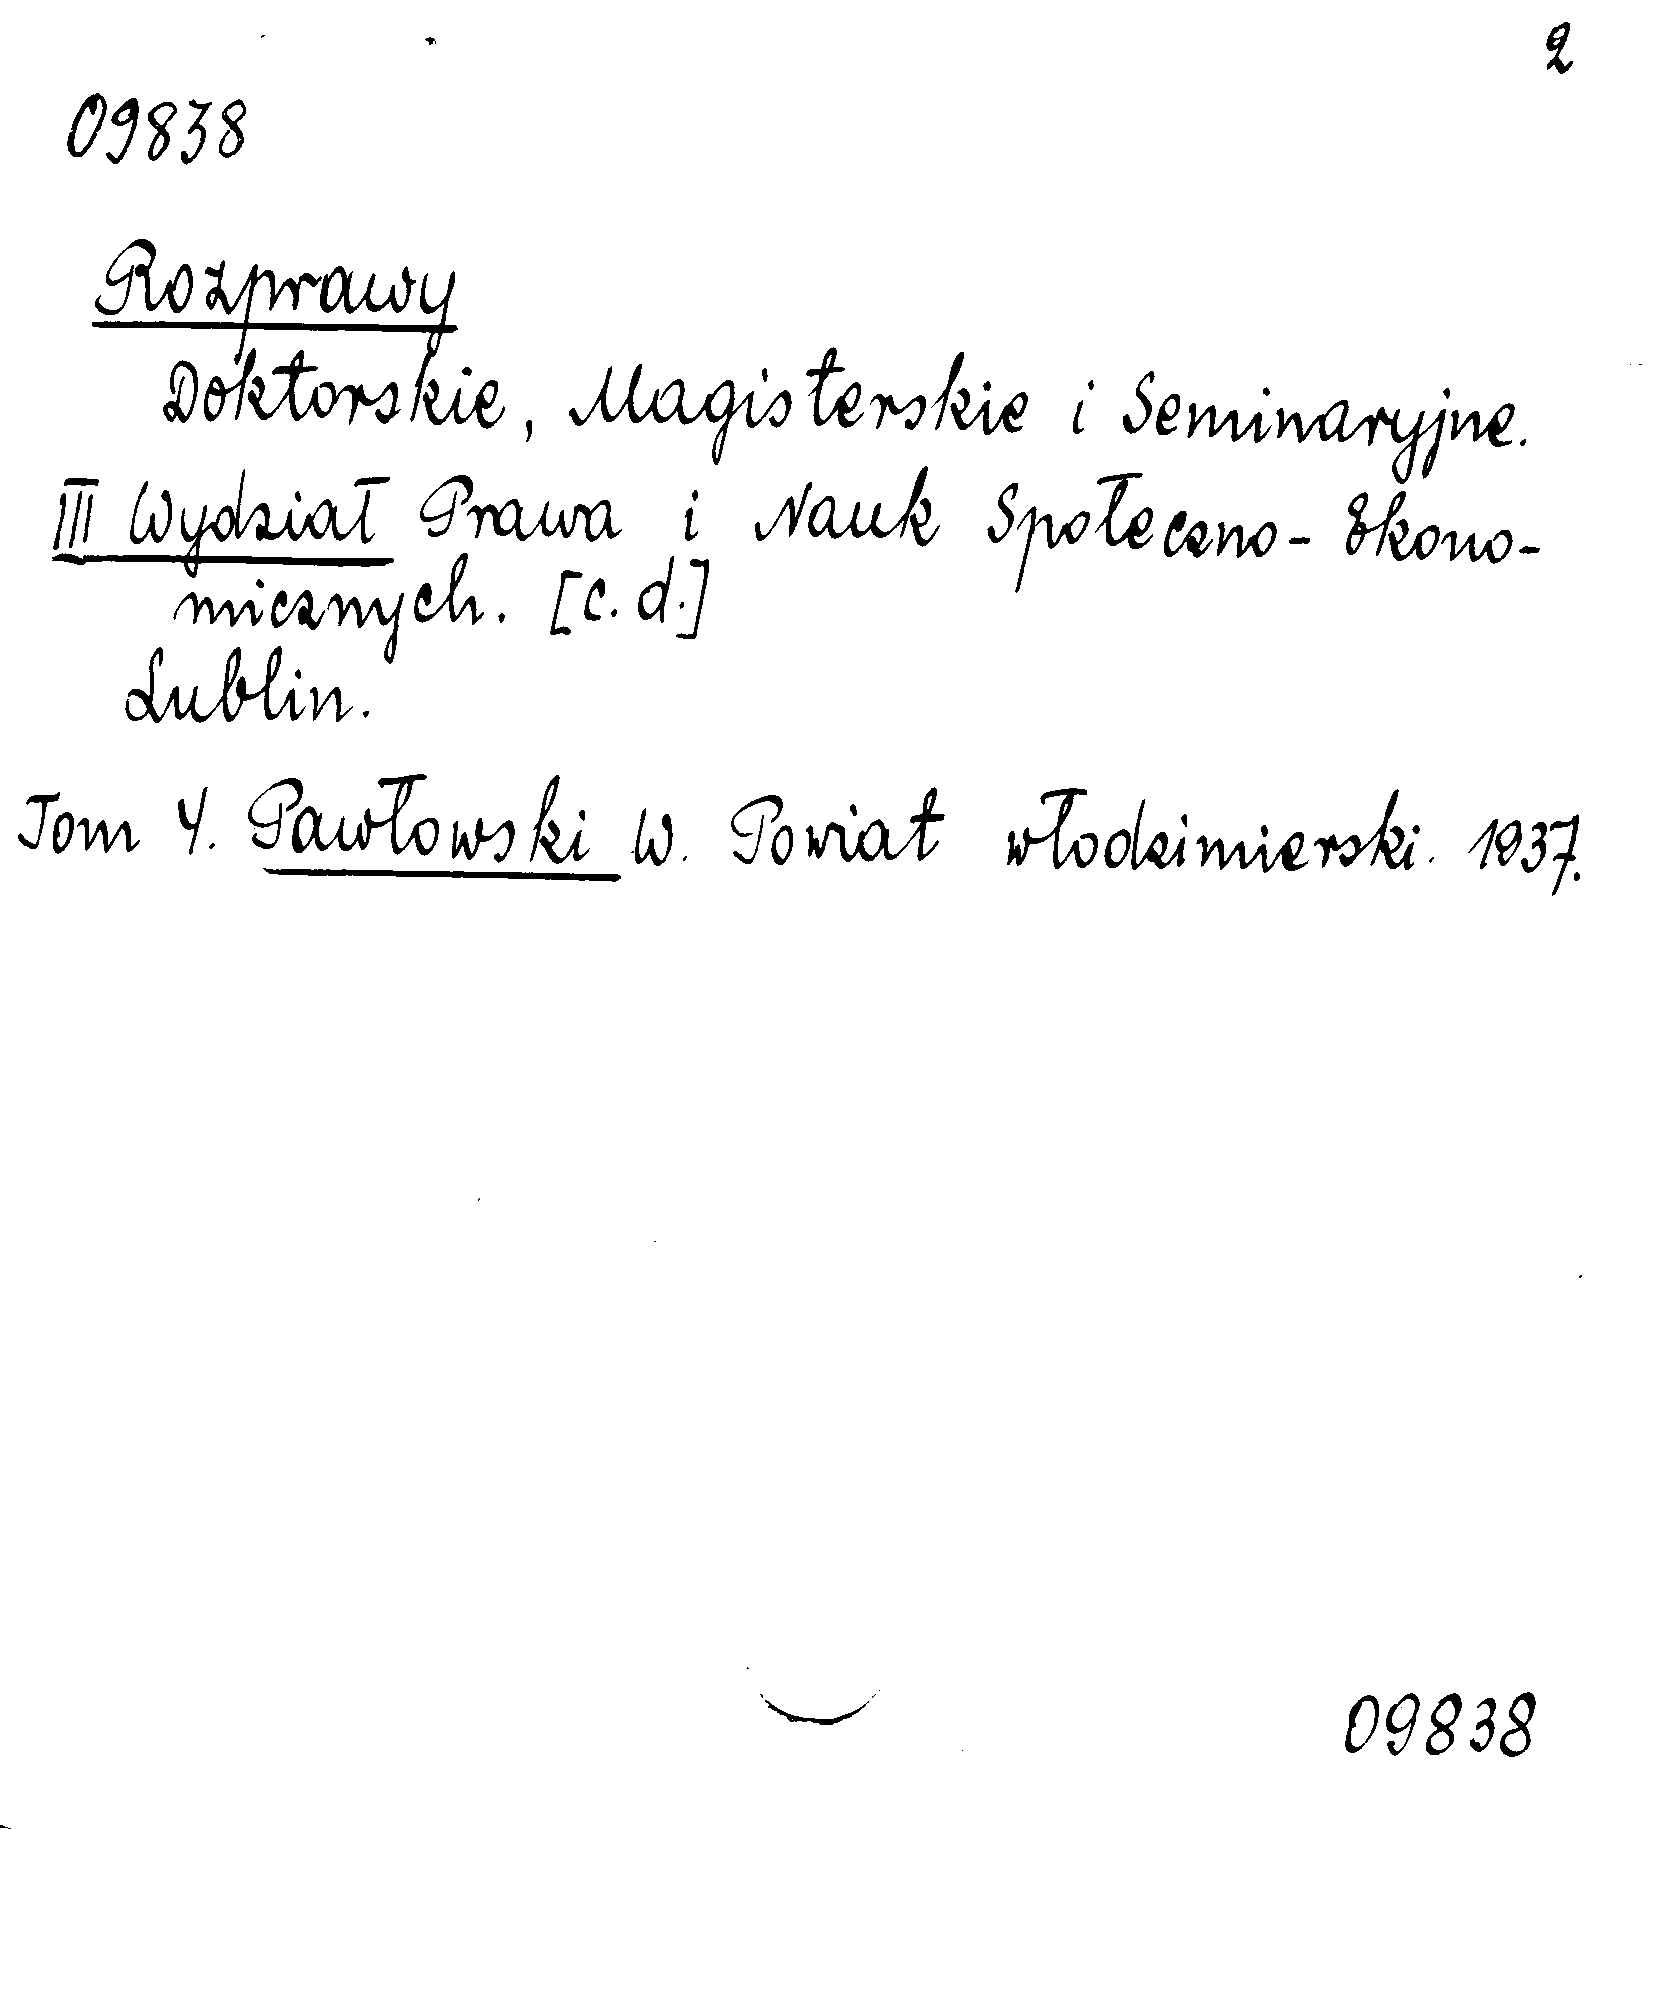 2
09838
Rozprawy
Doktorskie, Magisterskie i Seminaryjne.
III Wydział Prawa i Nauk Społeczno-Ekono-
micznych. [c.d.]
Lublin.
Tom 4. Pawłowski W. Powiat włodzimierski. 1937.
09838